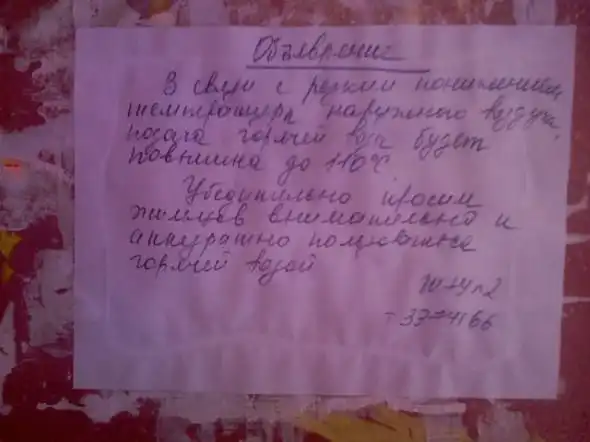 Объявление
В связи с резким понижением
температуры наружного воздуха,
подача горячей воды будет
повышена до 110°С
Убедительно просим
жильцев внимательно и
аккуратно пользоваться
горячей водой
т 33-41 66